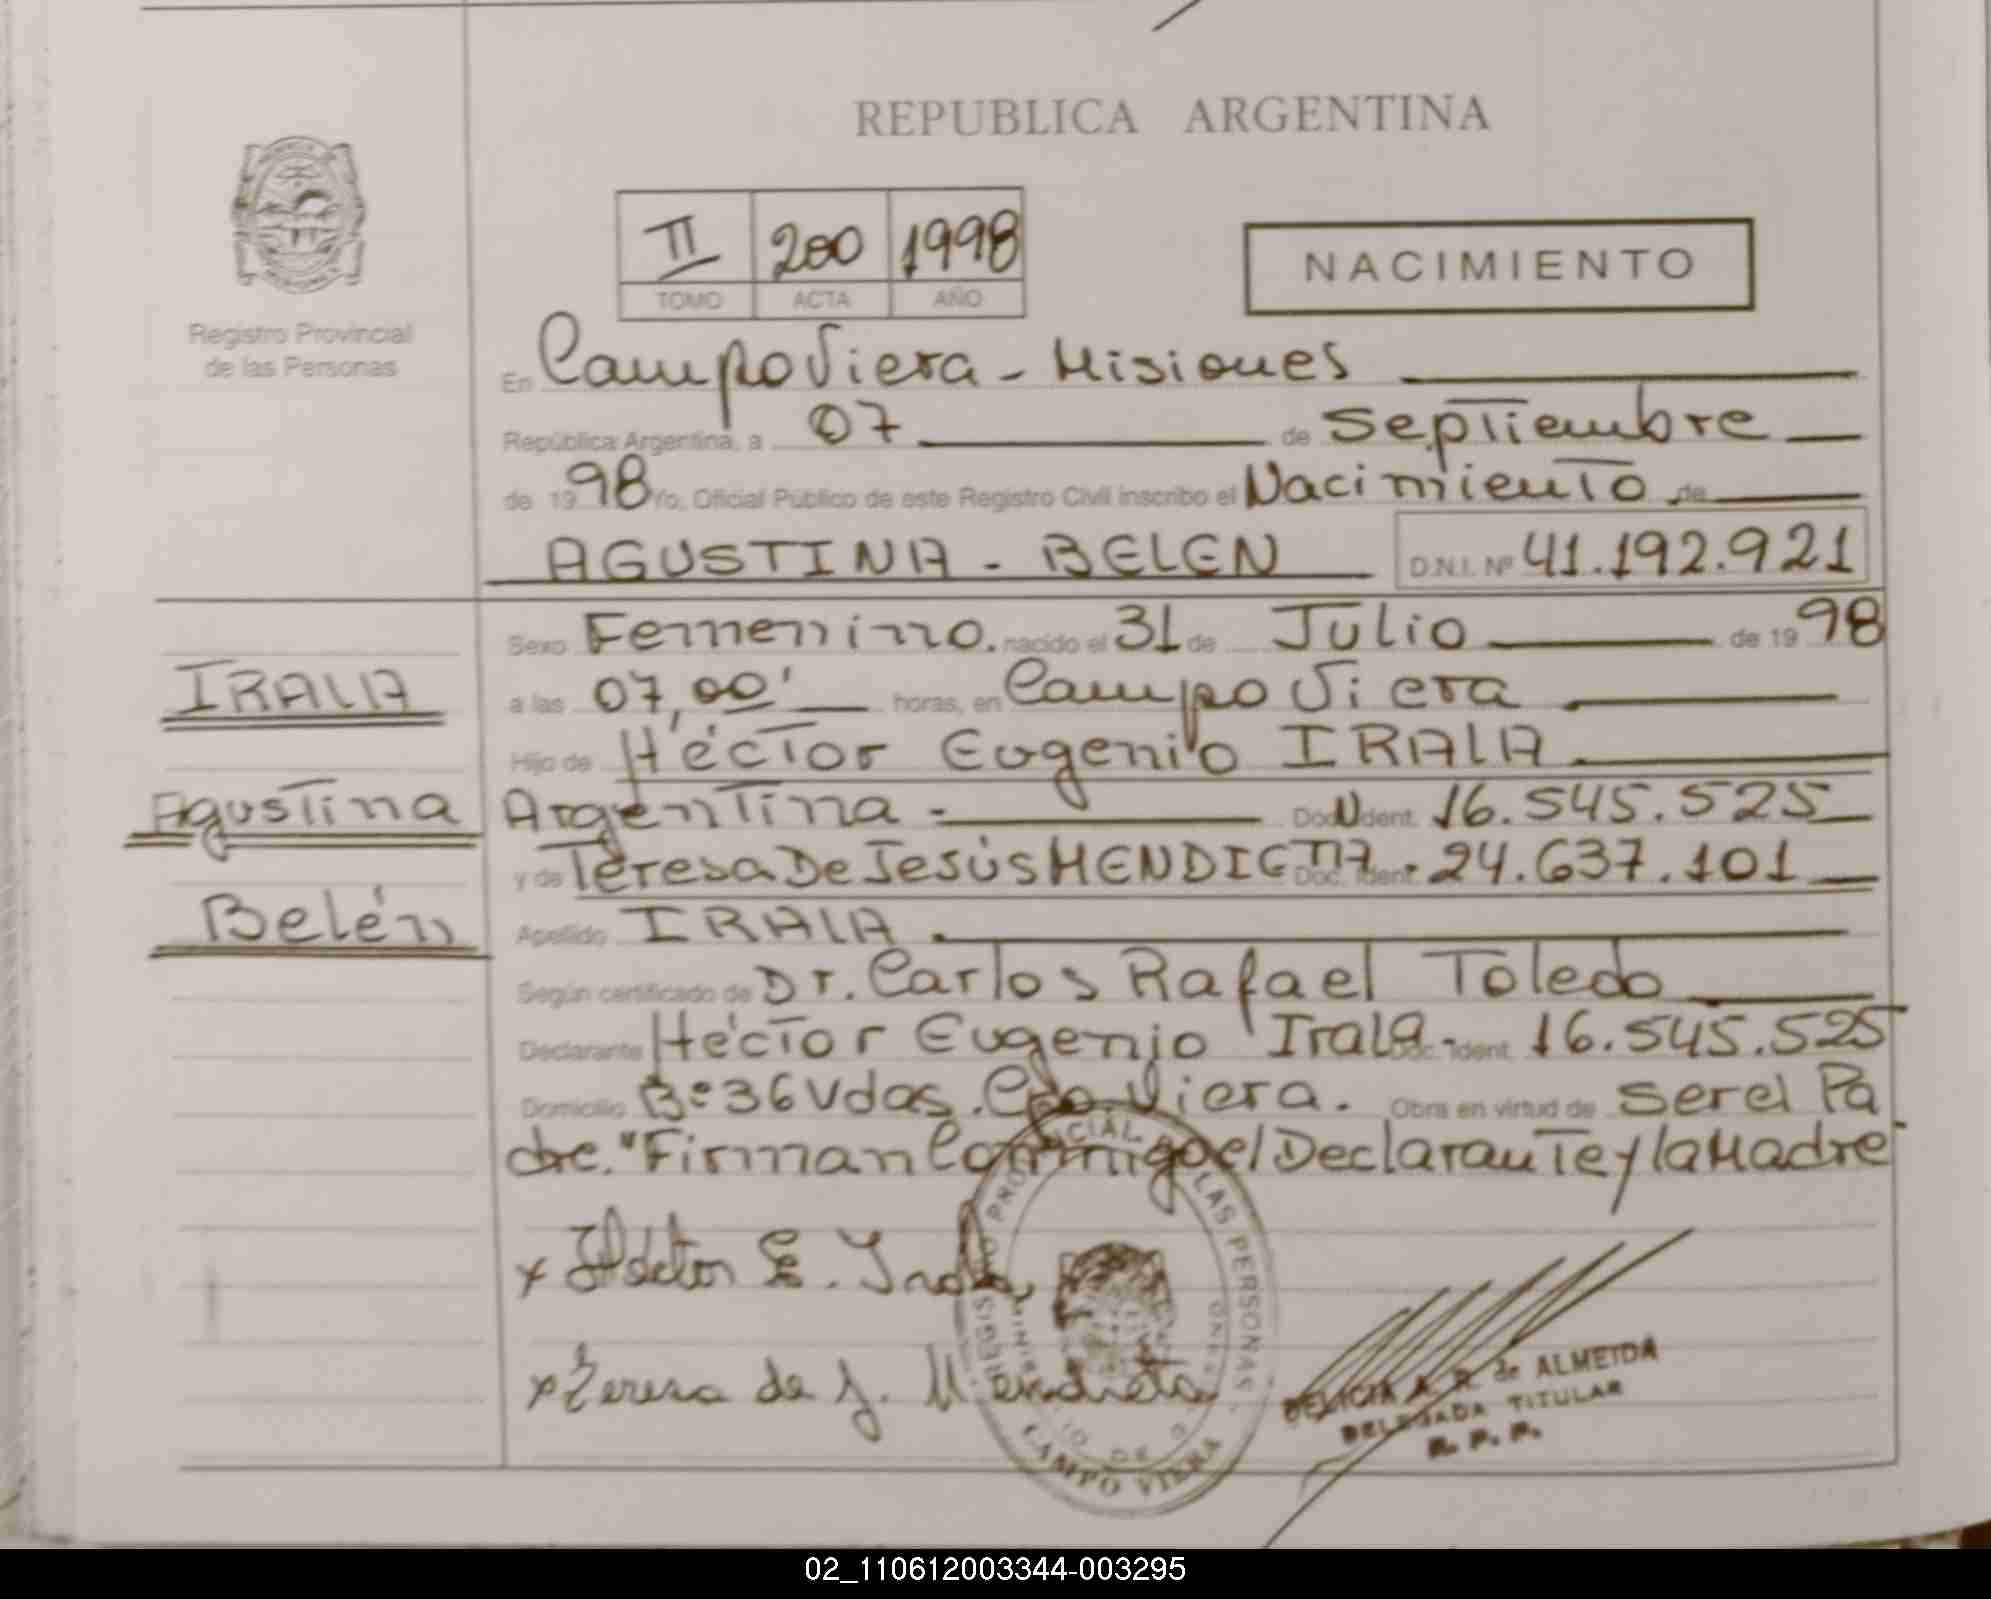 REPUBLICA ARGENTINA
II 200 1998
TOMO ACTA AÑO
NACIMIENTO
Registro Provincial
de las Personas
En Campo Viera - Misiones
República Argentina, a 07 de Septiembre
de 1998 Yo, Oficial Público de este Registro Civil inscribo el Nacimiento de
AGUSTINA - BELEN D.N.I. Nº 41.192.921
Sexo Femenino. nacido el 31 de Julio de 1998
IRALA
a las 07,00' horas, en Campo Viera
Hijo de Héctor Eugenio IRALA
Agustina
Argentina - Doc. Ident. 16.545.525
y de Teresa De Jesús MENDIETA. Doc. Ident. 24.637.101
Belén
Apellido IRALA
Según certificado de Dr. Carlos Rafael Toledo
Declarante Héctor Eugenio Irala - Doc. Ident. 16.545.525
Domicilio Bº 36 Vdas. Cpo Viera. Obra en virtud de ser el Pa
dre. "Firman Conmigo el Declarante y la Madre
x Héctor E. Irala
x Teresa de J. Mendieta
REGISTRO PROVINCIAL DE LAS PERSONAS
CAMPO VIERA
DELICIA A. R. de ALMEIDA
DELEGADA TITULAR
R. P. P.
02_110612003344-003295